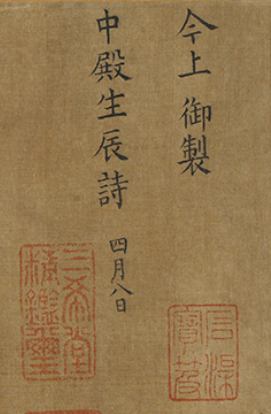 今上 御製
中殿生辰詩 四月八日
三希堂
精鑑璽
石渠
寶笈